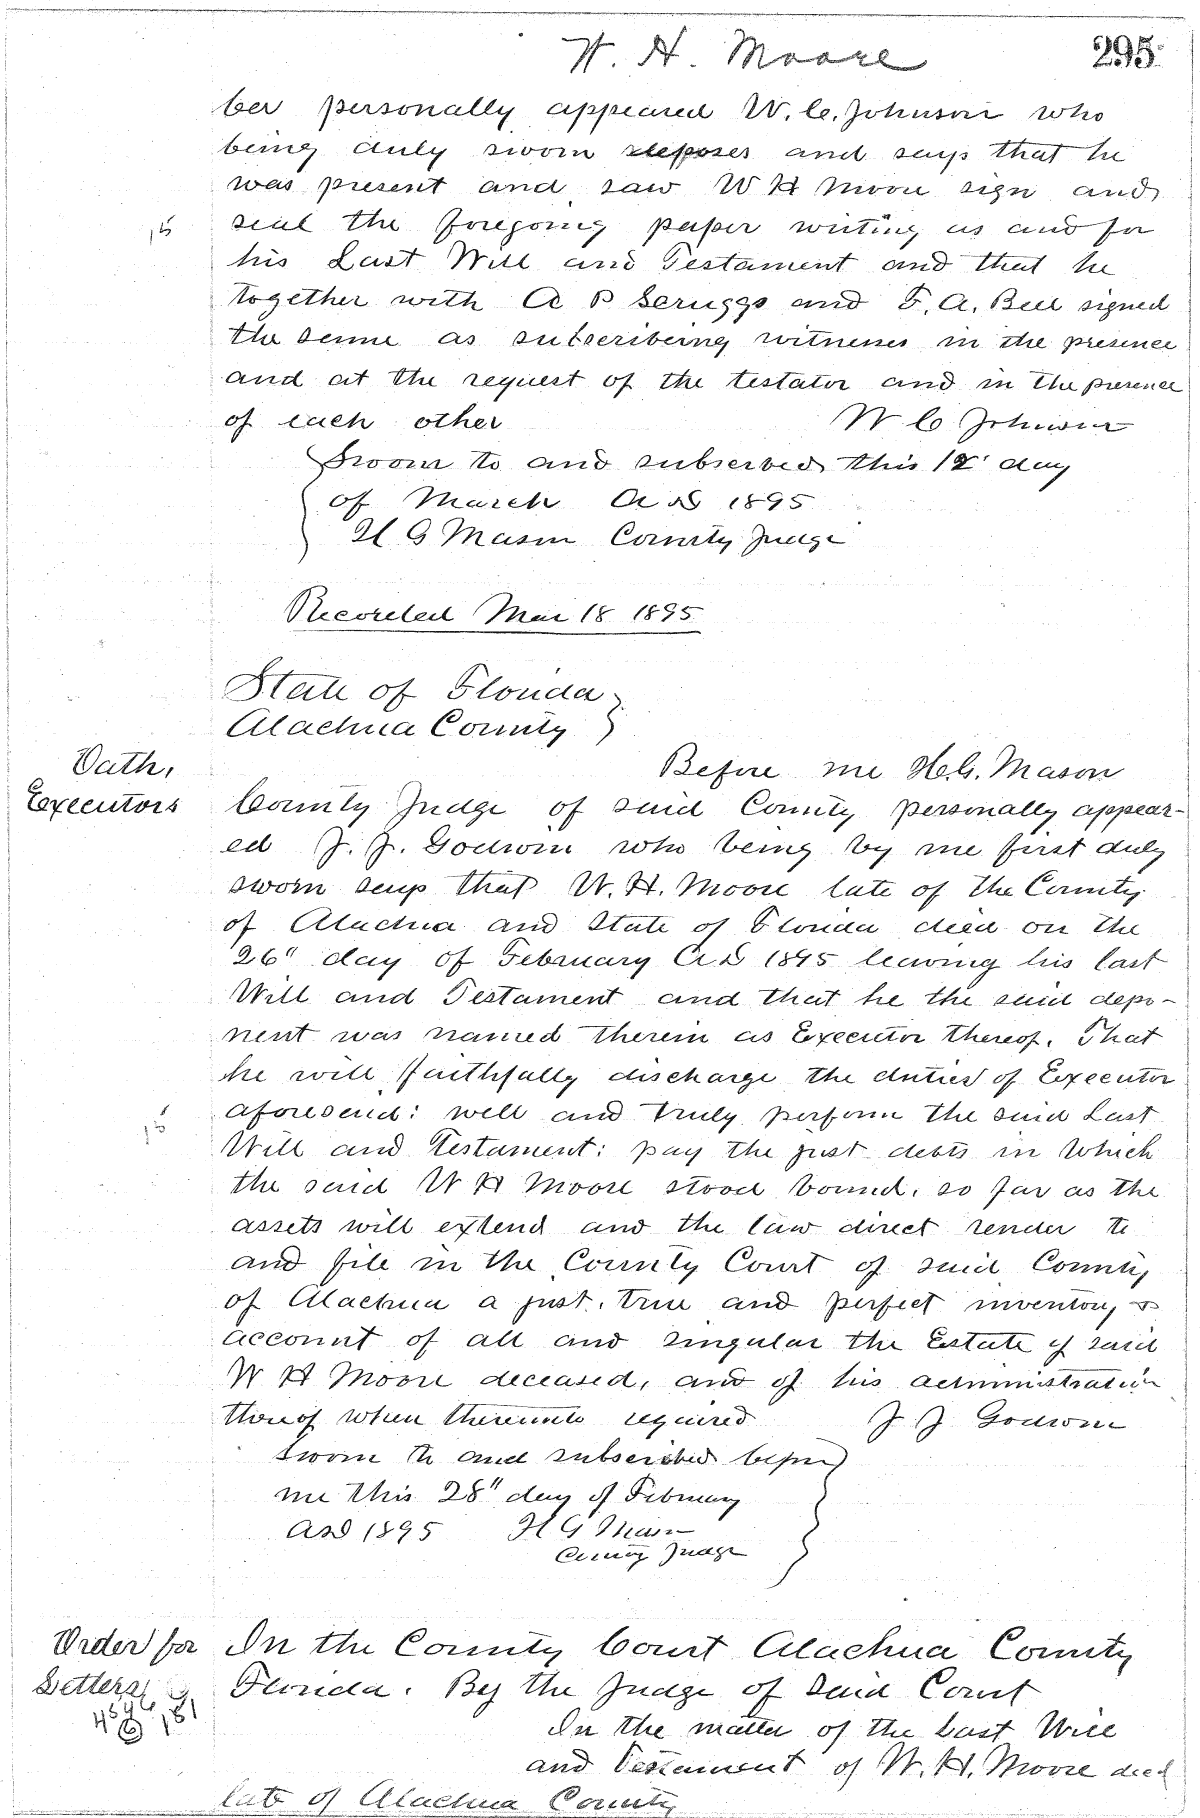 W. H. Moore
295
ber personally appeared W. C. Johnson who
being duly sworn deposes and says that he
was present and saw W H Moore sign and
seal the foregoing paper writing as and for
15
his Last Will and Testament and that he
together with A P Scruggs and F. A. Bell signed
the same as subscribeing witnesses in the presence
and at the request of the testator and in the presence
of each other W C Johnson
Sworn to and subscrbed this 12" day
of March A D 1895
H G Mason County Judge
Recorded Mar 18 1895
State of Florida
Alachua County
Oath,
Executors
Before me H. G. Mason
County Judge of said County personally appear-
ed J. J. Godwin who being by me first duly
sworn says that W. H. Moore late of the County
of Alachua and State of Florida died on the
26" day of February A D 1895 leaving his last
Will and Testament and that he the said depo-
nent was named therein as Executor thereof. That
he will faithfully discharge the duties of Executor
aforesaid: well and truly perform the said Last
15
Will and Testament: pay the just debts in which
the said W H Moore stood bound, so far as the
assets will extend and the law direct render to
and file in the County Court of said County
of Alachua a just, true and perfect inventory &
account of all and singular the Estate of said
W H Moore deceased, and of his administration
thereof when thereunto required J J Godwin
Sworn to and subscribed before
me this 28" day of February
A D 1895 H G Mason
County Judge
Order for
Letters
In the County Court Alachua County
Florida. By the Judge of said Court
In the matter of the Last Will
and Testament of W. H. Moore decd
late of Alachua County